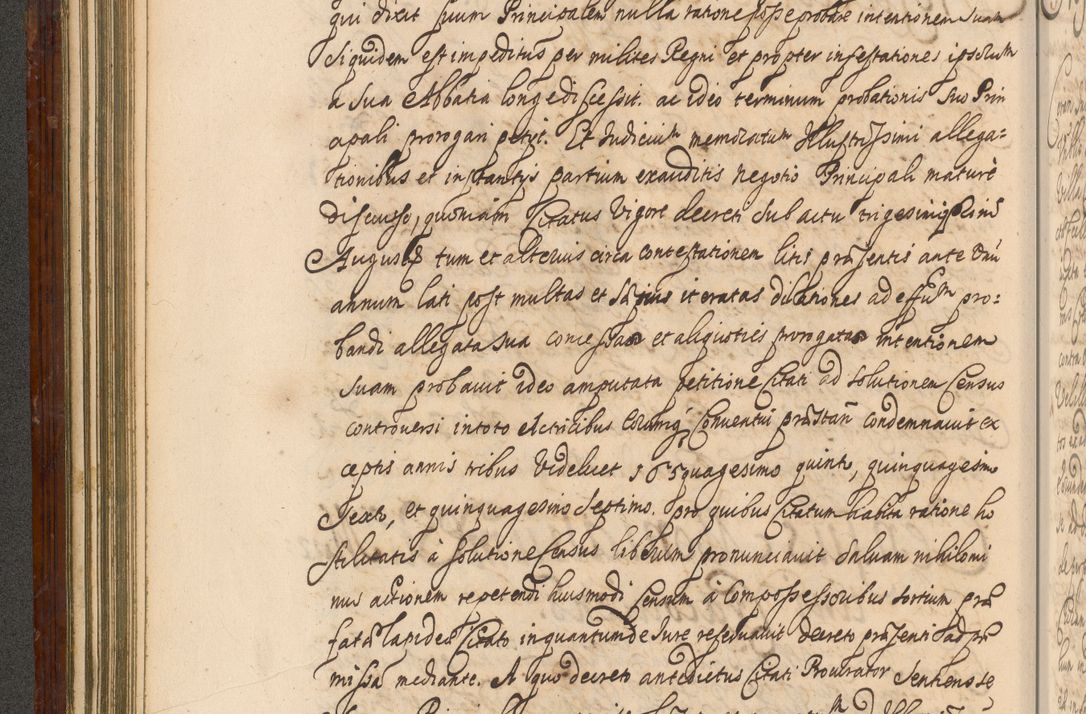 qui dixit suum Principalem nulla ratione posse probare intentionem suam
Siquidem est impeditus per milites Regni et propter infestationes ipsorum
a sua Abbatia longe discessit. ac ideo terminum probationis suo Prin
cipali prorogari petyt. Et Judicium memoratum Illustrissimi allega=
tionibus et instantys partium exauditis negotio Principali mature
discusso, quoniam Citatus Vigore decreti sub actu trigesimi
Augusti tum et alterius circa contestationem litis præsentis ante
annum lati post multas et sæpius iteratas dilationes ad effum pro=
bandi allegata sua concessas et aliquoties prorogatas intentionem
suam probavit ideo amputata petitione Citati ad solutionem Census
controversi in toto Conventui condemnavit ex
ceptis annis tribus Videlicet 165quagesimo quinto, quinquagesimo
Sexto, et quinquagesimo Septimo. pro quibus Citatum habita ratione ho
stilitatis à solutione Census liberum pronunciavit salvam nihilomi
nus actionem repetendi huiusmodi Censum à Compossessoribus sortium præ
fatæ lapideæ Citato inquantum de Jure reservavit decreto præsenti ad præ
missa mediante. A quo decreto antedictus Citati Procurator Sentiens se